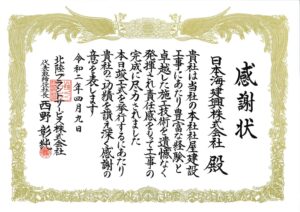 感謝状
日本海建興株式会社 殿
貴社は当社の本社社屋建設
工事にあたり豊富な経験と
卓越した施工技術を遺憾なく
発揮され責任感をもって工事の
完成に尽力されました
本日竣工式を挙行するにあたり
貴社の功績を讃え深く感謝の
意を表します
令和二年四月九日
北陸プラントサービス株式会社
代表取締役社長 西野彰純